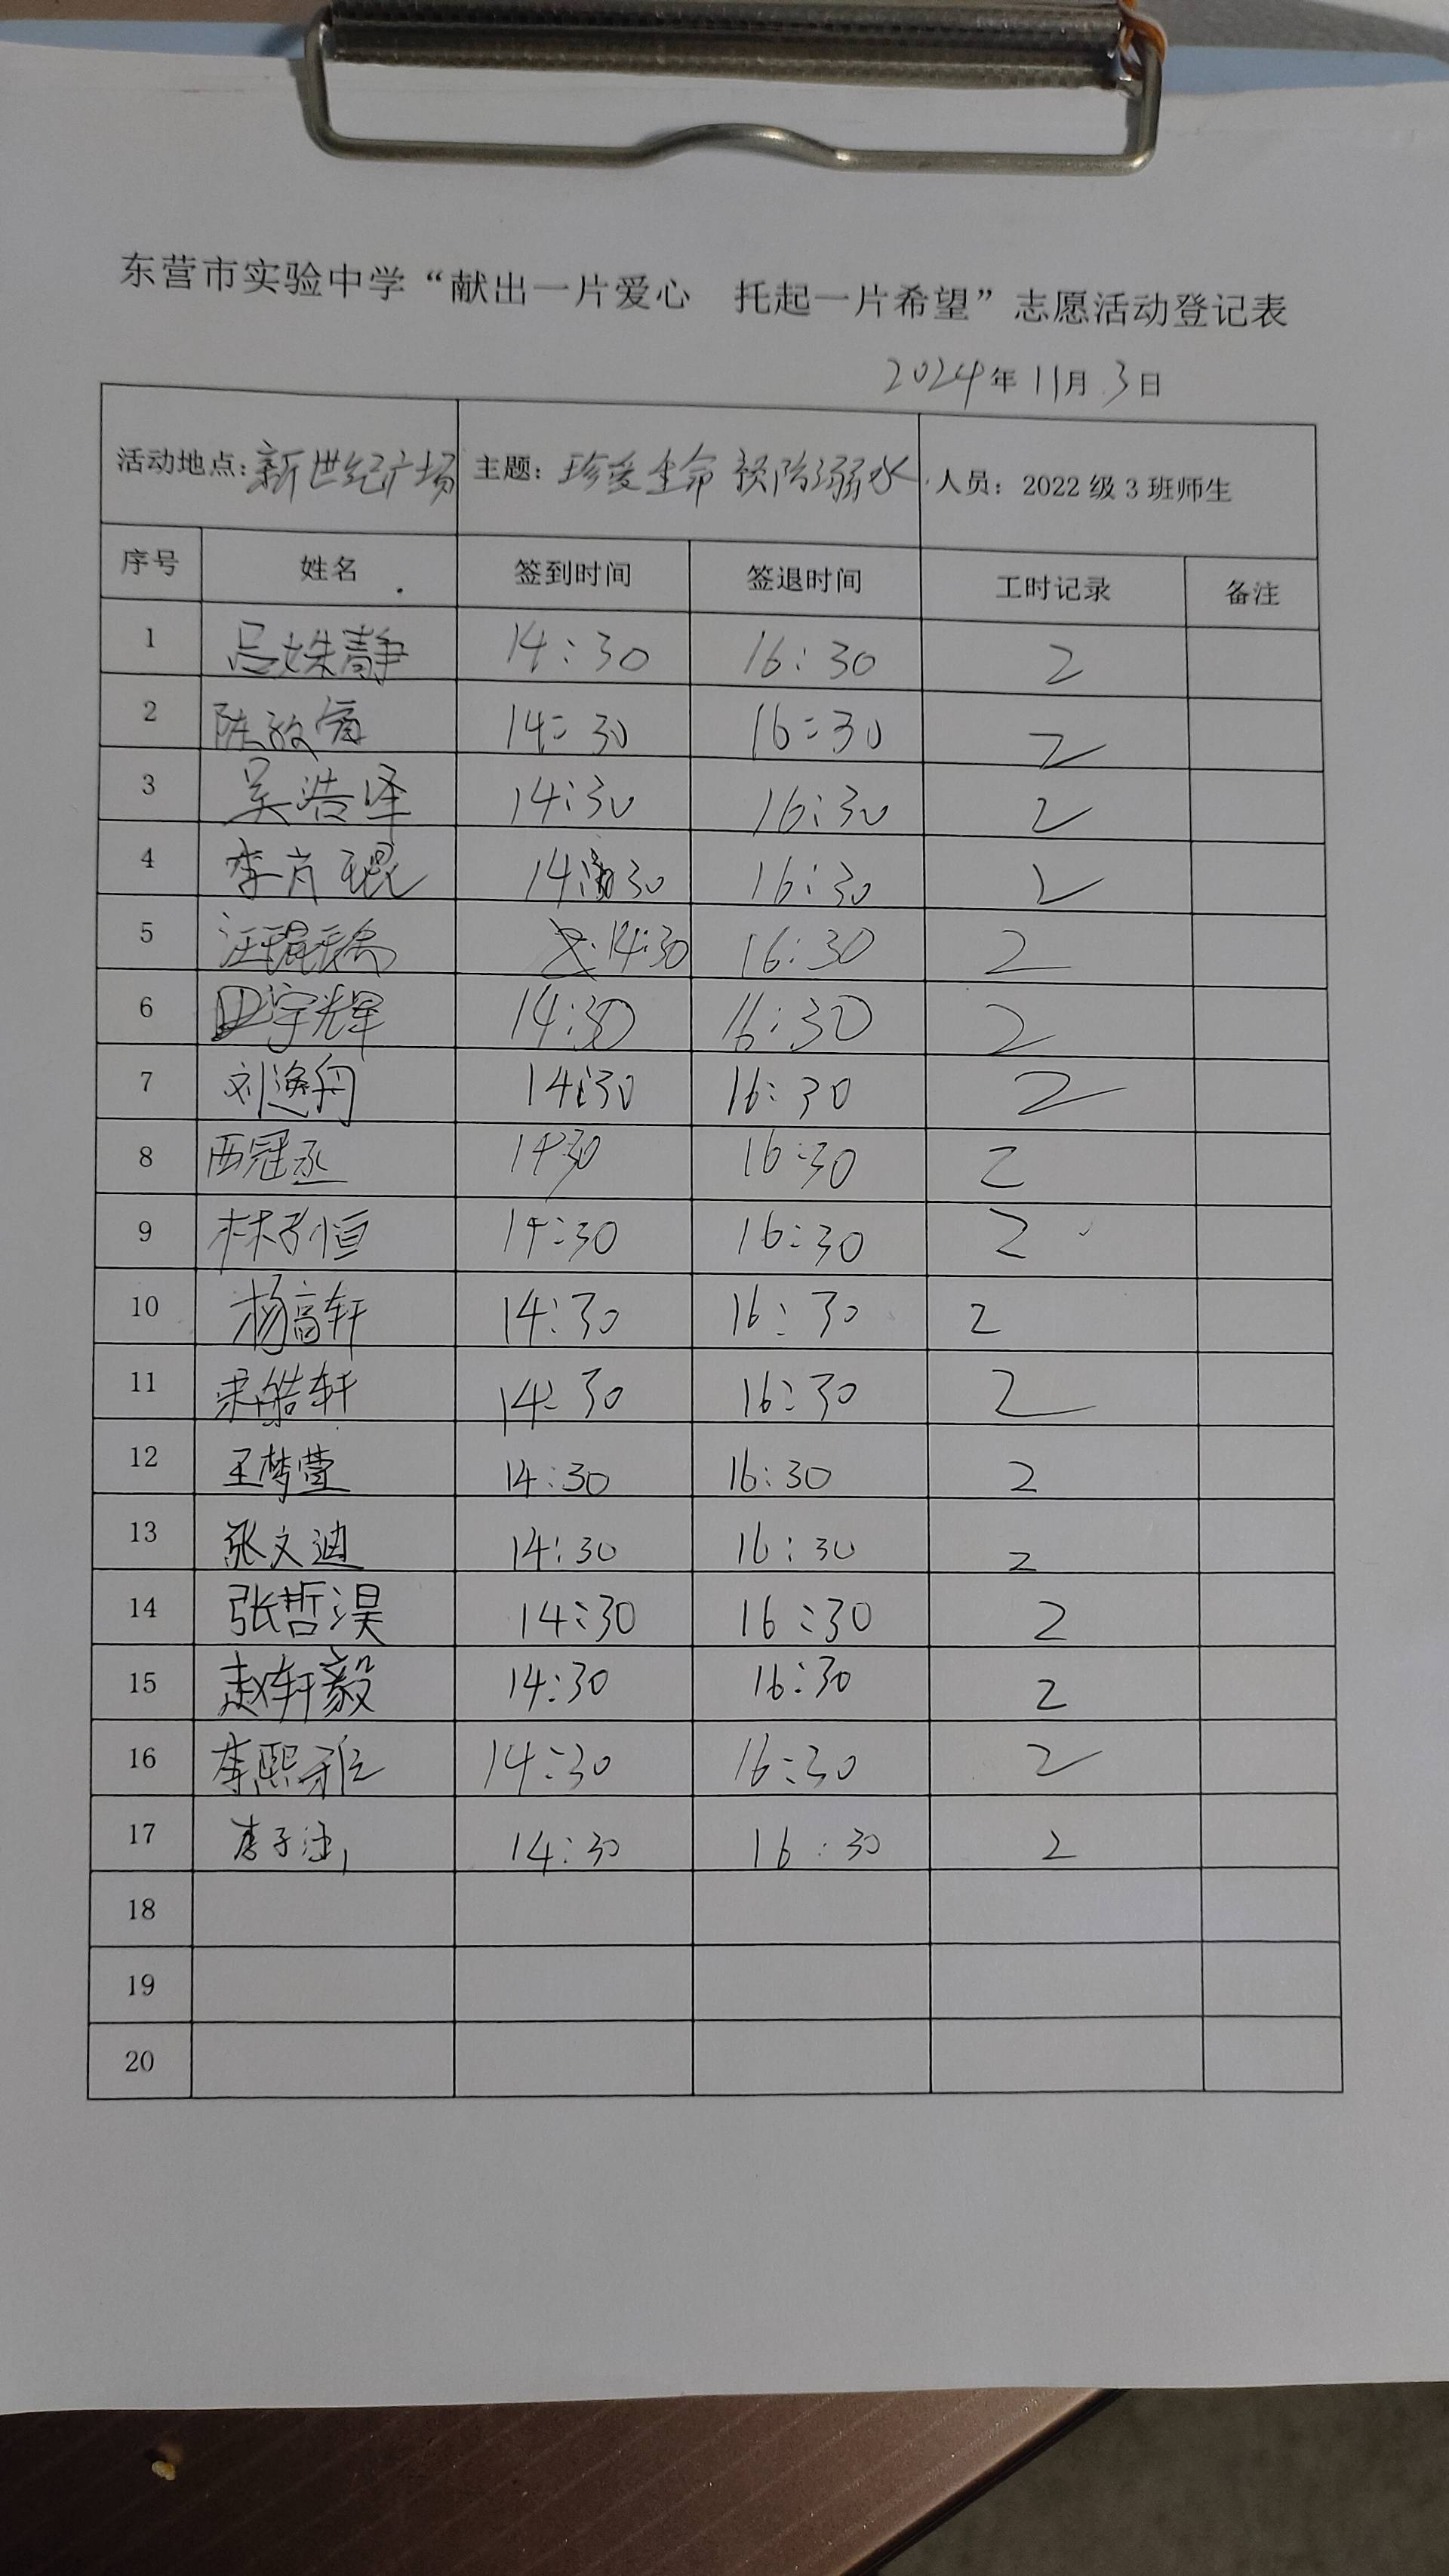 东营市实验中学“献出一片爱心 托起一片希望”志愿活动登记表
2024年11月3日
活动地点：新世纪广场 主题：珍爱生命 预防溺水 人员：2022级3班师生
序号 姓名 签到时间 签退时间 工时记录 备注
1 吕姝静 14:30 16:30 2
2 陈 14:30 16:30 2
3 吴浩泽 14:30 16:30 2
4 李肖琨 14:30 16:30 2
5 汪琨瑞 14:30 16:30 2
6 田宇辉 14:30 16:30 2
7 刘逸舟 14:30 16:30 2
8 西冠丞 14:30 16:30 2
9 林子恒 14:30 16:30 2
10 杨高轩 14:30 16:30 2
11 宋皓轩 14:30 16:30 2
12 王梦萱 14:30 16:30 2
13 张文迪 14:30 16:30 2
14 张哲淏 14:30 16:30 2
15 赵轩毅 14:30 16:30 2
16 李熙雅 14:30 16:30 2
17 李子 14:30 16:30 2
18
19
20